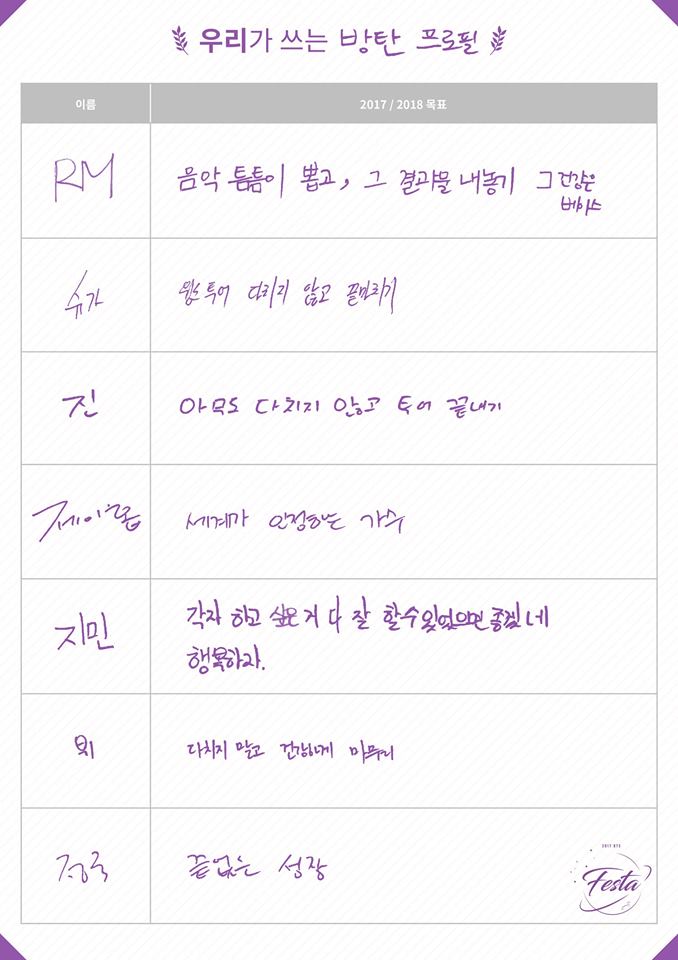 우리가 쓰는 방탄 프로필
이름 2017 / 2018 목표
RM 음악 틈틈이 뽑고, 그 결과물 내놓기 그건강은
베이스
슈가 윙스투어 다치지 않고 끝마치기
진 아무도 다치지 않고 투어 끝내기
제이홉 세계가 인정하는 가수
지민 각자 하고 싶은거 다 잘 할수있었으면 좋겠네
행복하자.
뷔 다치지 말고 건강하게 마무리
정국 끝없는 성장
2017 BTS
Festa